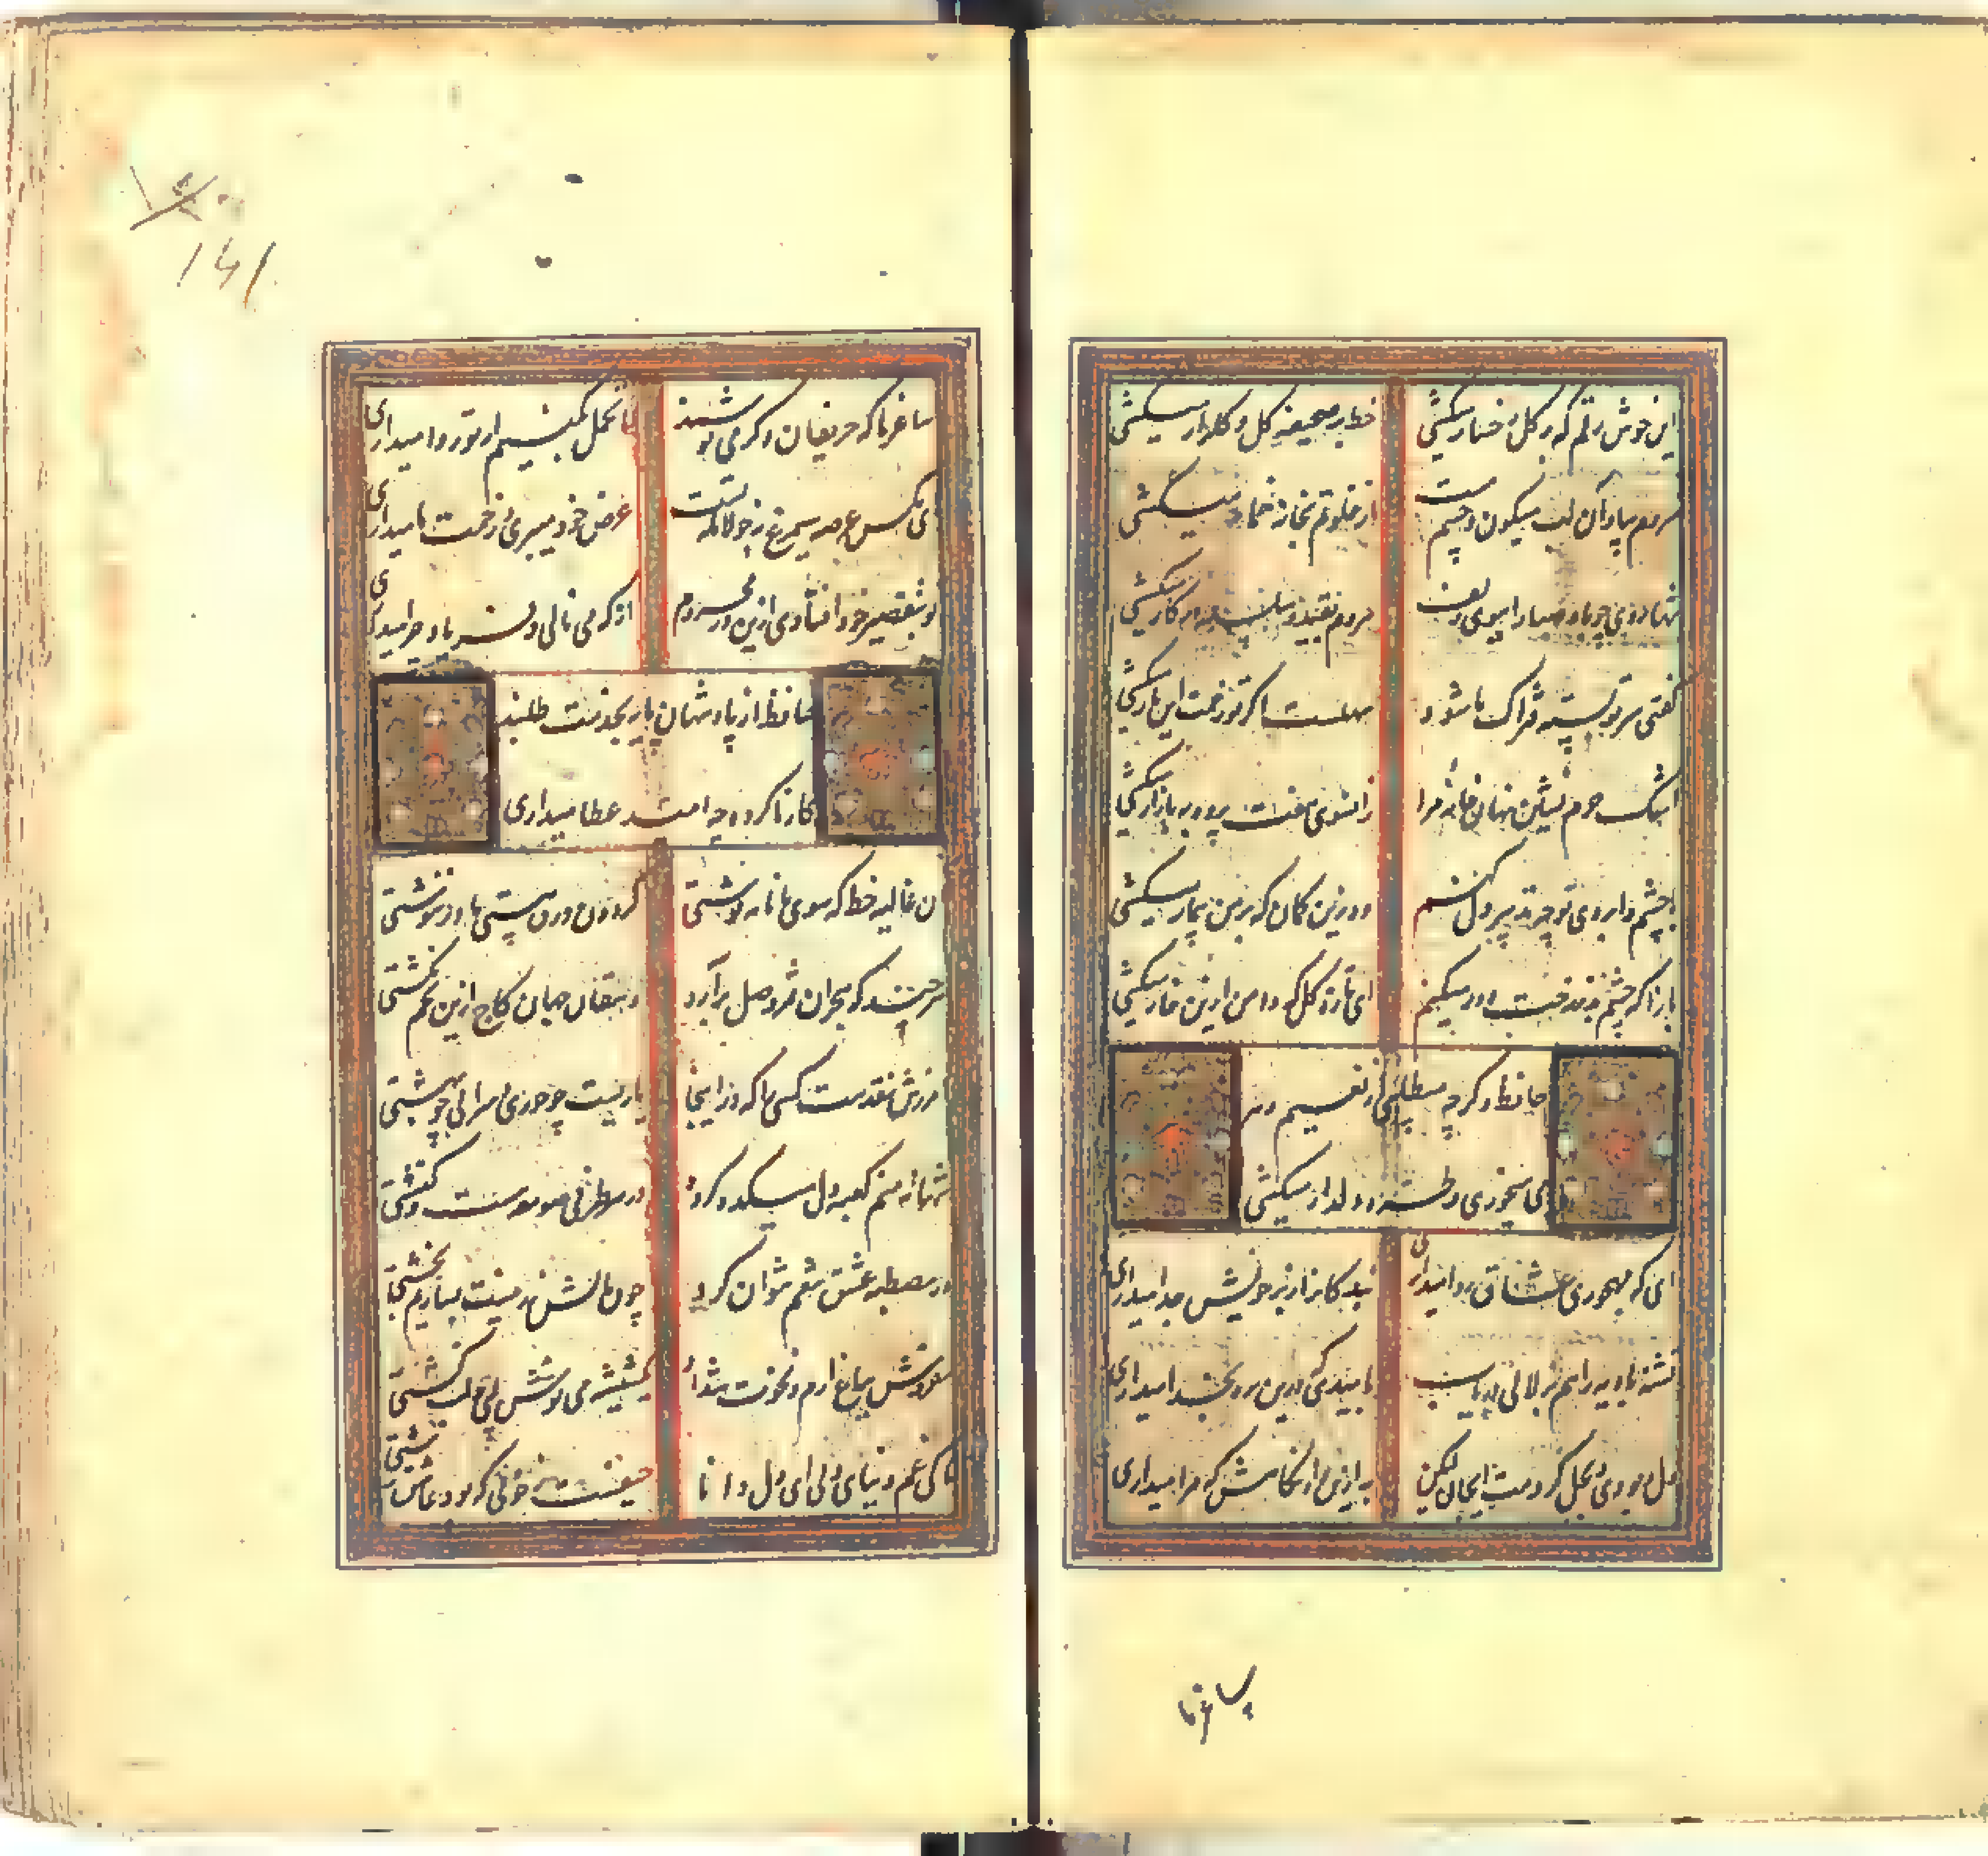 این خوش رقم که بر کل رخسار میکشی
خط بر صحیفه کل و کلزار میکشی
مردم بیاد آن لب میکون و چشم مست
از خلوتم بخانه خمار میکشی
هر دم بقید سلسله در کار میکشی
کفتی سر تو بسته فتراک ما شود
سهلست اکر تو زحمت این بار میکشی
اشک حرم نشین نهان خانه مرا
زانسوی هفت پرده ببازار میکشی
با چشم و ابروی تو چه تدبیر دل کنم
وه زین کمان که بر من بیمار میکشی
بازا که چشم بد ز رخت دور میکنم
ای تازه کل که دامن ازین خار میکشی
حافظ دکر چه میطلبی از نعیم دهر
می میخوری و طره دلدار میکشی
ای که مهجوری عشاق روا میداری
بندکانرا ز بر خویش جدا میداری
تشنه بادیه را هم بزلالی دریاب
بامیدی که درین ره بخدا میداری
دل ربودی و بحل کردمت ای جان لیکن
به ازین دار نکاهش که مرا میداری
ساغر ما
ساغر ما که حریفان دکر می نوشند
ما تحمل بکنیم ار تو روا میداری
ای مکس عرصه سیمرغ نه جولانکه تست
عرض خود میبری و زحمت ما میداری
تو بتقصیر خود افتادی ازین در محروم
از که می نالی و فریاد چرا میداری
حافظ از پادشهان پایه بخدمت طلبند
کار ناکرده چه امید عطا میداری
آن غالیه خط که سوی ما نامه نوشتی
کردون ورق هستی ما در ننوشتی
هر چند که هجران ثمر وصل برآرد
دهقان جهان کاج ازین تخم نکشتی
آمرزش نقدست کسی را که در اینجا
یاریست چو حوری و سرائی چو بهشتی
تنها نه منم کعبه دل میکده کرده
در هر طرفی صومعه ست و کنشتی
در مصطبه عشق تنعم نتوان کرد
چون بالش زر نیست بسازیم بخشتی
مفروش بباغ ارم و نخوت شداد
یک شیشه می و نوش لبی و لب کشتی
تا کی غم دنیای دنی ای دل دانا
حیفست ز خوبی که بود عاشق زشتی
۱۶۱